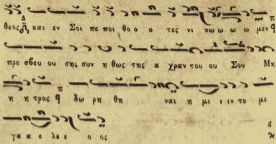 θεος Δ και εν Σοι πε ποι θο ο τες νι κω ω ω μεν
πρε σβευ ου σης συν η θως της α χραν του ου Σου Μη
η η τρος δω ρη θη ναι η μι ι ιν το με
γα α ε λε ε ος